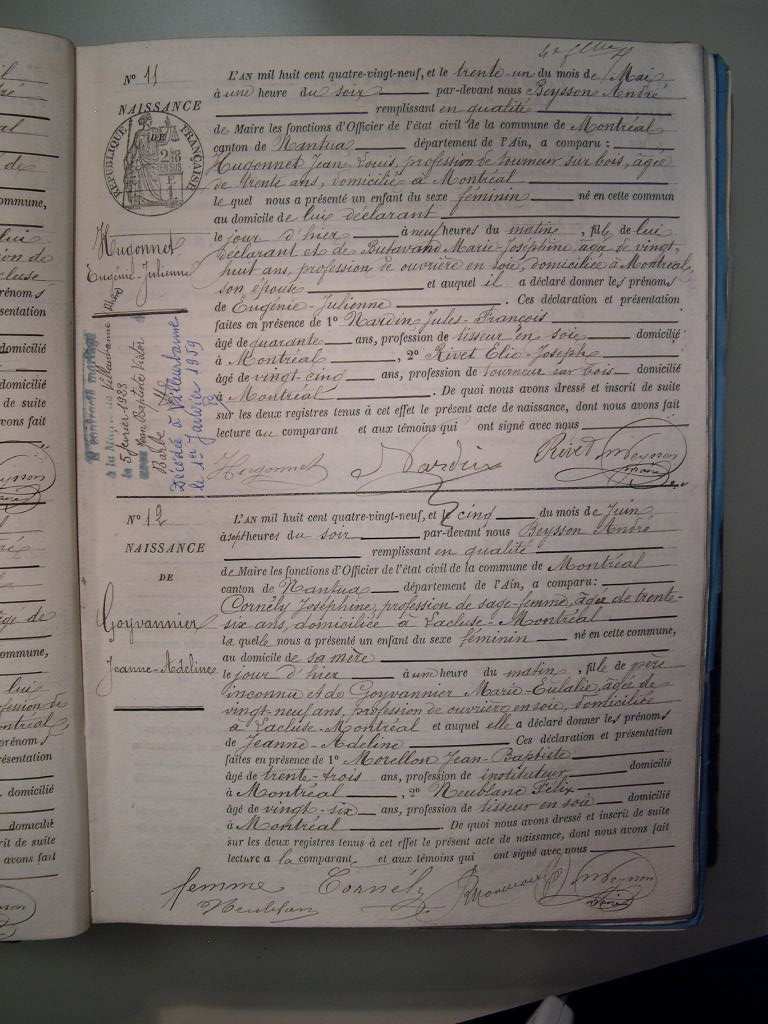 N° 11
NAISSANCE
RÉPUBLIQUE FRANÇAISE
Hugonnet
Eugénie-Julienne
à la Mairie de Villeurbanne
le 5 février 1923
Jean Baptiste Victor
Barbe
Décédée à Villeurbanne
le 1er Janvier 1959
L'AN mil huit cent quatre-vingt-neuf, et le trente-un du mois de Mai
à une heure du soir par-devant nous Beysson André
remplissant en qualité
de Maire les fonctions d'Officier de l'état civil de la commune de Montréal
canton de Nantua département de l'Ain, a comparu :
Hugonnet Jean Louis, profession de tourneur sur bois, âgée
de trente ans, domicilié à Montréal
le quel nous a présenté un enfant du sexe féminin né en cette commun
au domicile de lui déclarant
le jour d'hier à neuf heures du matin, fille de lui
déclarant et de Butavand Marie-Joséphine, âgée de vingt-
huit ans, profession de ouvrière en soie, domiciliée à Montréal,
son épouse et auquel il a déclaré donner les prénoms
de Eugénie-Julienne. Ces déclaration et présentation
faites en présence de 1° Nardin Jules-François
âgé de quarante ans, profession de tisseur en soie domicilié
à Montréal, 2° Rivet Élie-Joseph
âgé de vingt-cinq ans, profession de tourneur sur bois domicilié
à Montréal. De quoi nous avons dressé et inscrit de suite
sur les deux registres tenus à cet effet le présent acte de naissance, dont nous avons fait
lecture au comparant et aux témoins qui ont signé avec nous
Hugonnet Nardin Rivet Beysson
maire
N° 12
NAISSANCE
DE
Goyvannier
Jeanne-Adeline
L'AN mil huit cent quatre-vingt-neuf, et le cinq du mois de Juin
à sept heures du soir par-devant nous Beysson André
remplissant en qualité
de Maire les fonctions d'Officier de l'état civil de la commune de Montréal
canton de Nantua département de l'Ain, a comparu :
Cornély Joséphine, profession de sage-femme, âgée de trente-
six ans, domiciliée à Lacluse-Montréal
la quelle nous a présenté un enfant du sexe féminin né en cette commune,
au domicile de sa mère
le jour d'hier à une heure du matin, fille de père
inconnu et de Goyvannier Marie-Eulalie, âgée de
vingt-neuf ans, profession de ouvrière en soie, domiciliée
à Lacluse-Montréal et auquel elle a déclaré donner les prénoms
de Jeanne-Adeline Ces déclaration et présentation
faites en présence de 1° Morellon Jean-Baptiste
âgé de trente-trois ans, profession de instituteur, domicilié
à Montréal, 2° Neublanc Félix
âgé de vingt-six ans, profession de tisseur en soie domicilié
à Montréal. De quoi nous avons dressé et inscrit de suite
sur les deux registres tenus à cet effet le présent acte de naissance, dont nous avons fait
lecture à la comparant et aux témoins qui ont signé avec nous
femme Cornély Beysson